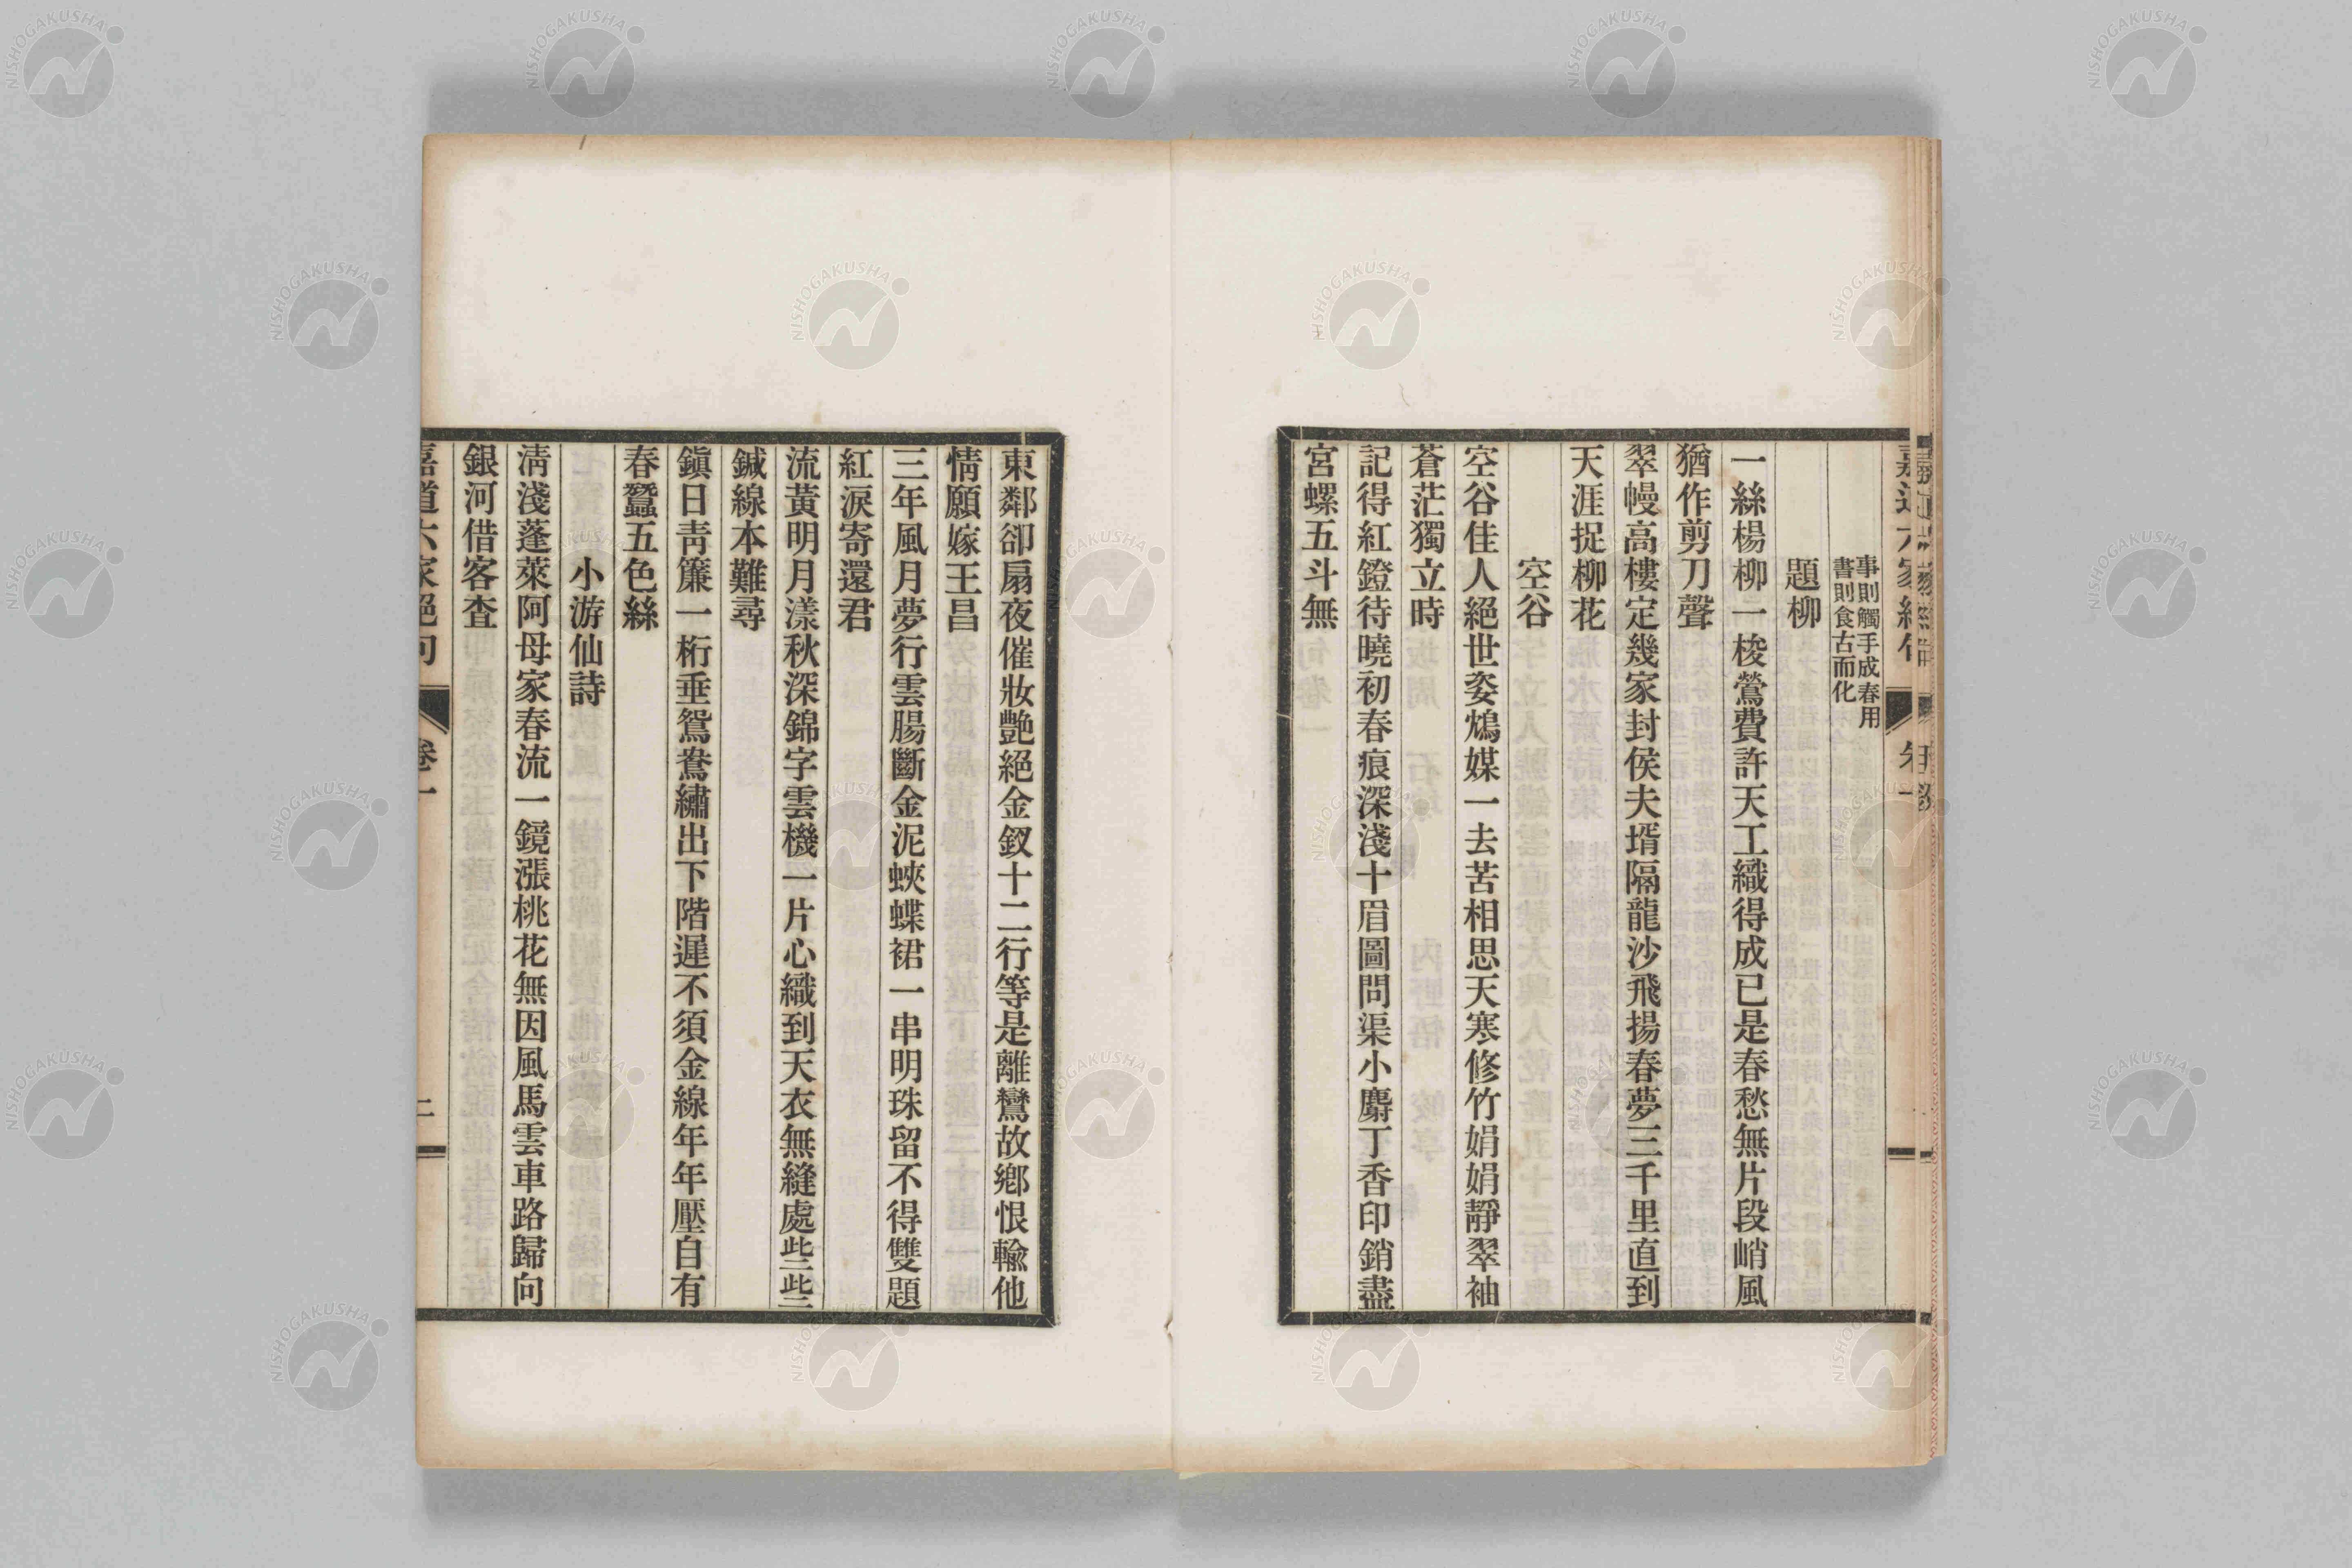 嘉道六家絕句
卷一
事則觸手成春用
書則食古而化
題柳
一絲楊柳一梭鶯費許天工織得成已是春愁無片段峭風
猶作剪刀聲
翠幔高樓定幾家封侯夫壻隔龍沙飛揚春夢三千里直到
天涯捉柳花
空谷
空谷佳人絕世姿鴆媒一去苦相思天寒修竹娟娟靜翠袖
蒼茫獨立時
記得紅鐙待曉初春痕深淺十眉圖問渠小麝丁香印銷盡
宮螺五斗無
東鄰卻扇夜催妝艷絕金釵十二行等是離鸞故鄉恨輸他
情願嫁王昌
三年風月夢行雲腸斷金泥蛺蝶裙一串明珠留不得雙題
紅淚寄還君
流黃明月漾秋深錦字雲機一片心織到天衣無縫處些些
鍼線本難尋
鎭日靑簾一桁垂鴛鴦繡出下階遲不須金線年年壓自有
春蠶五色絲
小游仙詩
淸淺蓬萊阿母家春流一鏡漲桃花無因風馬雲車路歸向
銀河借客査
嘉道六家絕句
卷一
二
NISHOGAKUSHA